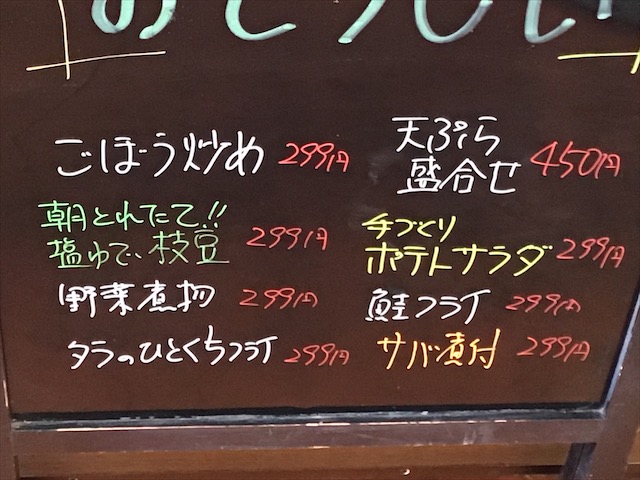 ごぼう炒め 299円
朝とれたて!!
塩ゆで、枝豆 299円
野菜煮物 299円
タラのひとくちフライ 299円
天ぷら
盛合せ 450円
手づくり
ポテトサラダ 299円
鮭フライ 299円
サバ煮付 299円